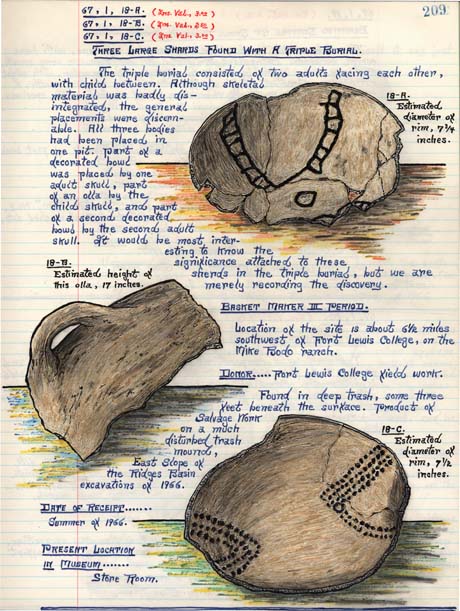 209
67, 1, 18-A. (Ins. Val., 3.00)
67, 1, 18-B. (Ins. Val., 2.00)
67, 1, 18-C. (Ins. Val., 3.00)
Three Large Shards Found With A Triple Burial.
The triple burial consisted of two adults facing each other,
with child between. Although skeletal
material was badly dis-
integrated, the general
placements were discern-
able. All three bodies
had been placed in
one pit. Part of a
decorated bowl
was placed by one
adult skull, part
of an olla by the
child skull, and part
of a second decorated
bowl by the second adult
skull. It would be most inter-
esting to know the
significance attached to these
sherds in the triple burial, but we are
merely recording the discovery.
18-A.
Estimated
diameter of
rim, 7 1/4
inches.
18-B.
Estimated height of
this olla, 17 inches.
Basket Maker III Period.
Location of the site is about 6 1/2 miles
southwest of Fort Lewis College, on the
Mike Bodo ranch.
Donor.... Fort Lewis College field work.
Found in deep trash, some three
feet beneath the surface. Product of
Salvage Work
on a much
disturbed trash
mound,
East Slope of
the Ridges Basin
excavations of 1966.
18-C.
Estimated
diameter of
rim, 7 1/2
inches.
Date of Receipt.......
Summer of 1966.
Present Location
in Museum.......
Store Room.